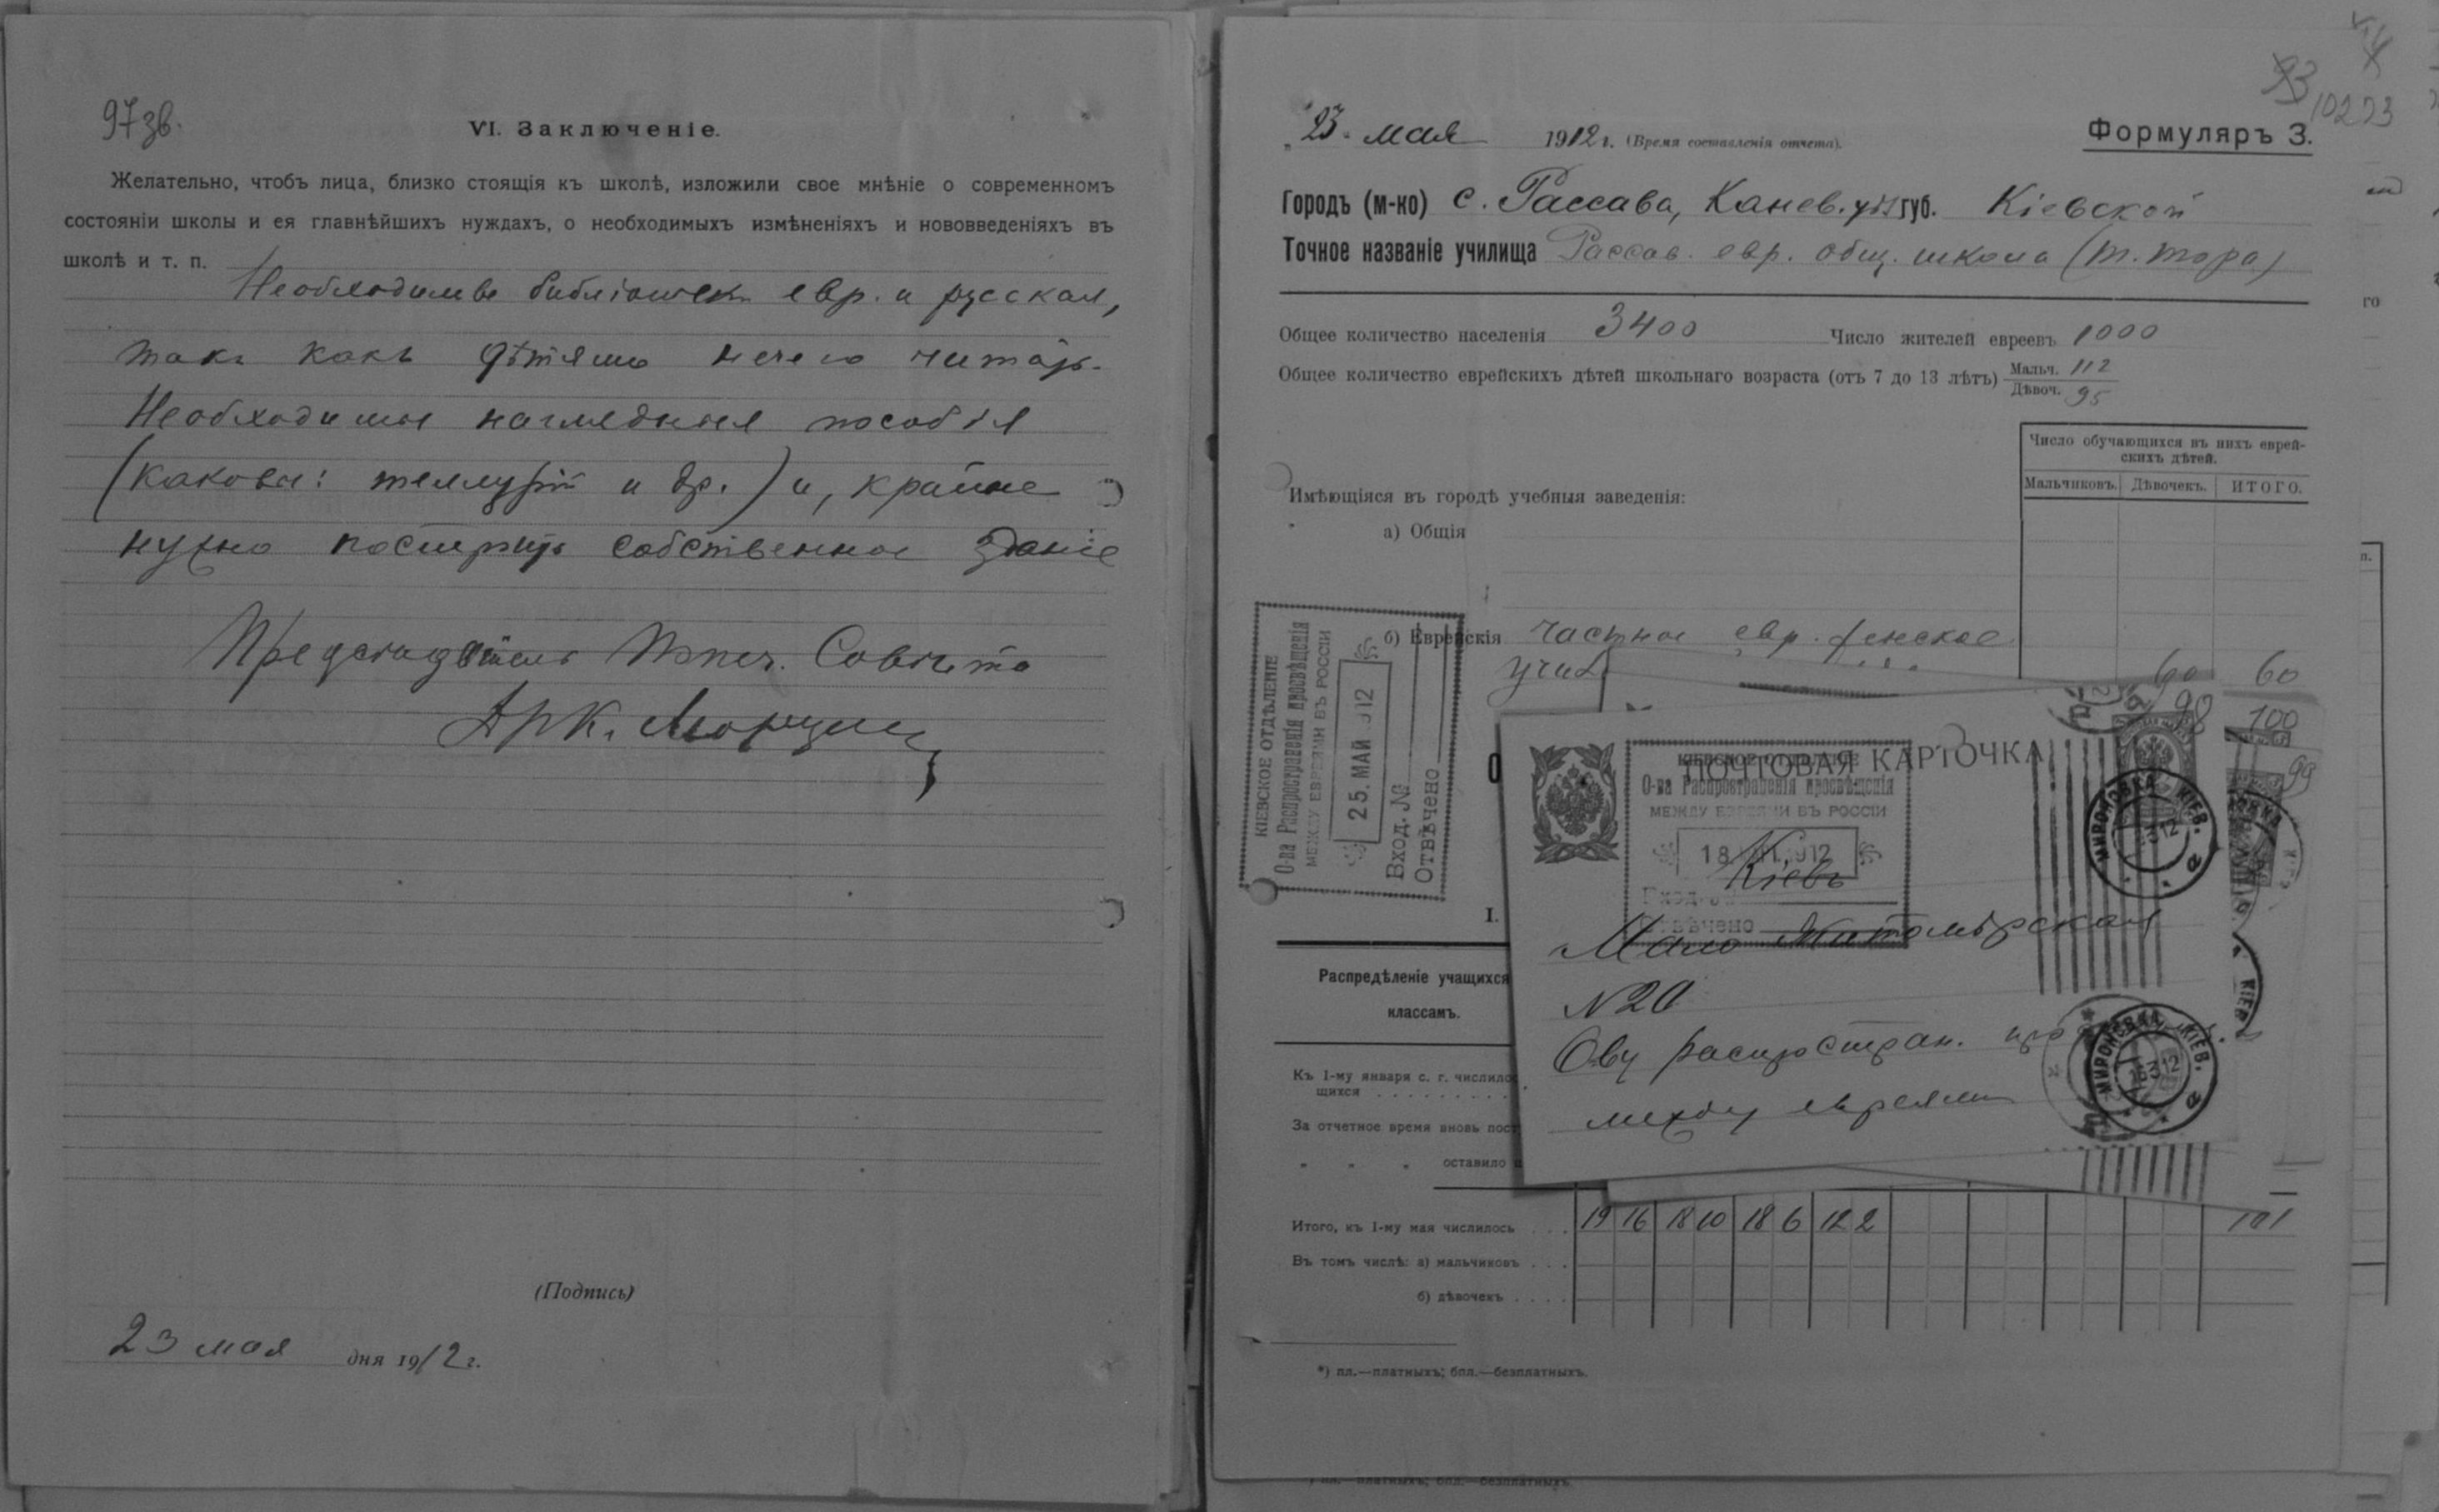 97 зв.
VI. Заключеніе.
Желательно, чтобъ лица, близко стоящія къ школѣ, изложили свое мнѣніе о современномъ
состояніи школы и ея главнѣйшихъ нуждахъ, о необходимыхъ измѣненіяхъ и нововведеніяхъ въ
школѣ и т. п.
Необходима библіотека евр. и русская,
такъ какъ дѣтямъ нечего читать.
Необходимы наглядныя пособія
(каковы: теллурій и др.) и, крайне
нужно построить собственное зданіе
Предсѣдатель Попеч. Совѣта
Арк.
(Подпись)
23 мая дня 1912 г.
93
102 73
„23" мая 1912 г. (Время составленія отчета).
Формуляръ 3.
Городъ (м-ко) с. Рассава, Канев. уѣз. губ. Кіевской
Точное названіе училища Рассав. евр. общ. школа (т. тора)
Общее количество населенія 3400 Число жителей евреевъ 1000
Общее количество еврейскихъ дѣтей школьнаго возраста (отъ 7 до 13 лѣтъ) Мальч. 112
Дѣвоч. 95
Число обучающихся въ нихъ еврей-
скихъ дѣтей.
Мальчиковъ. Дѣвочекъ. ИТОГО.
Имѣющіяся въ городѣ учебныя заведенія:
а) Общія
б) Еврейскія частное евр. женское
учил
60 60
98 100
99
КІЕВСКОЕ ОТДѢЛЕНІЕ
О-ва Распространенія просвѣщенія
МЕЖДУ ЕВРЕЯМИ ВЪ РОССІИ
25. МАЙ 912
Вход. №
Отвѣчено
О
ПОЧТОВАЯ КАРТОЧКА
КІЕВСКОЕ ОТДѢЛЕНІЕ
О-ва Распространенія просвѣщенія
МЕЖДУ ЕВРЕЯМИ ВЪ РОССІИ
18 912
Вход. №
Отвѣчено
Кіевъ
Мало Житомірская
№ 20
Обу распростран.
между евреями
МИРОНОВКА КІЕВ.
МИРОНОВКА КІЕВ.
16 3 12
I.
Распредѣленіе учащихся
классамъ.
Къ 1-му января с. г. числилос
щихся
За отчетное время вновь пост
„ „ „ оставило
Итого, къ 1-му мая числилось 19 16 18 10 18 6 12 2 101
Въ томъ числѣ: а) мальчиковъ
б) дѣвочекъ
*) пл.—платныхъ; бпл.—безплатныхъ.